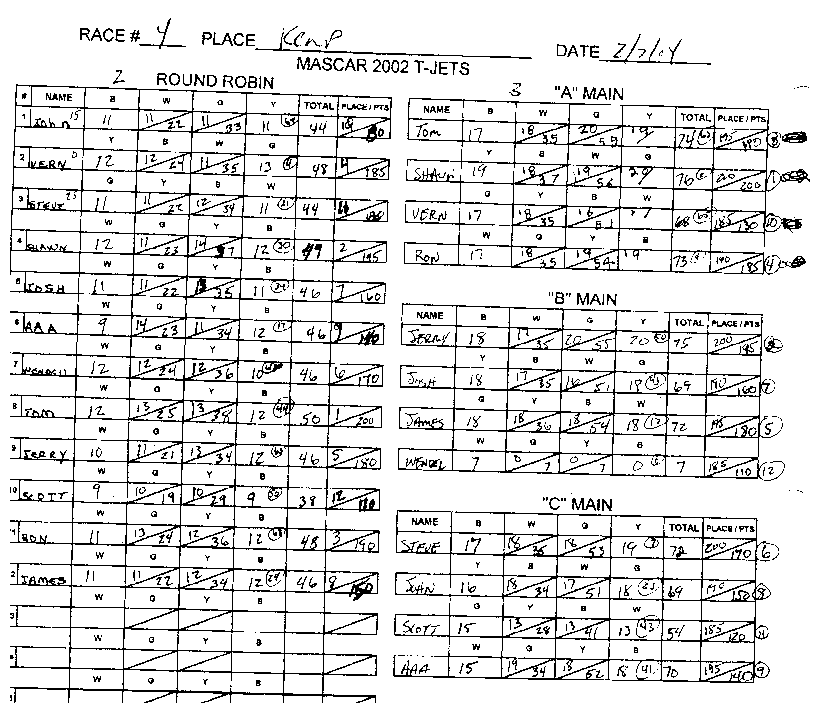 RACE # 4 PLACE Kemp DATE 2/7/04
MASCAR 2002 T-JETS
2 ROUND ROBIN
# NAME B W G Y TOTAL PLACE / PTS
1 John 15 11 11/22 11/33 11 44
Y B W G
2 VERN 12 12/24 11/35 13 48 4/185
G Y B W
3 STEVE 25 11 11/22 12/34 11 (21) 44
W G Y B
4 SHAWN 12 11/23 14/37 12 (20) 49 2/195
W G Y B
5 JOSH 11 11/22 13/35 11 46 7/160
G Y B
6 AAA 9 14/23 11/34 12 (17) 46 9
W G Y B
7 WENDELL 12 12/24 12/36 10 46 6/170
G Y B
8 TOM 12 13/25 13/38 12 50 1/200
W G Y B
9 JERRY 10 11/21 13/34 12 46 5/180
W G Y B
10 SCOTT 9 10/19 10/29 9 38 12
W G Y B
RON 11 13/24 12/36 12 48 3/190
W G Y B
JAMES 11 11/22 12/34 12 (24) 46 8
W G Y B
W G Y B
W G Y B
3 "A" MAIN
NAME B W G Y TOTAL PLACE / PTS
TOM 17 18/35 20/55 19 74
Y B W G
SHAWN 19 18/37 19/56 20 76 200/200 (1)
G Y B W
VERN 17 18/35 16/51 17 68 185/130 (10)
W G Y B
RON 17 18/35 19/54 19 73 190/185 (4)
"B" MAIN
NAME B W G Y TOTAL PLACE / PTS
JERRY 18 17/35 20/55 20 75 200/195
Y B W G
JOSH 18 17/35 16/51 18 69 190/160 (7)
G Y B W
JAMES 18 18/36 18/54 18 (12) 72 195/180 (5)
W G Y B
WENDEL 7 0/7 0/7 0 7 185/110 (12)
"C" MAIN
NAME B W G Y TOTAL PLACE / PTS
STEVE 17 18/35 18/53 19 72 200/170 (6)
Y B W G
JOHN 16 18/34 17/51 18 (23) 69 190/150 (8)
G Y B W
SCOTT 15 13/28 13/41 13 (43) 54 185/120 (11)
W G Y B
AAA 15 19/34 18/52 18 (41) 70 195/140 (9)